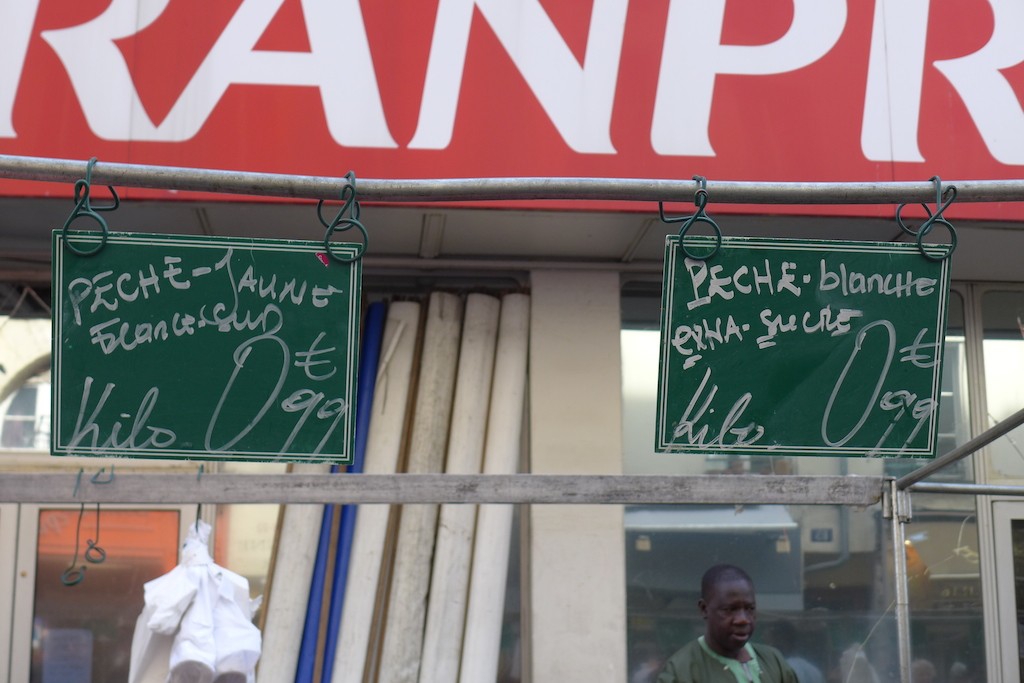 RANPR
PÊCHE-JAUNE
FRANCE-SUD
Kilo 0€99
PECHE-blanche
EXTRA-SUCRE
Kilo 0€99